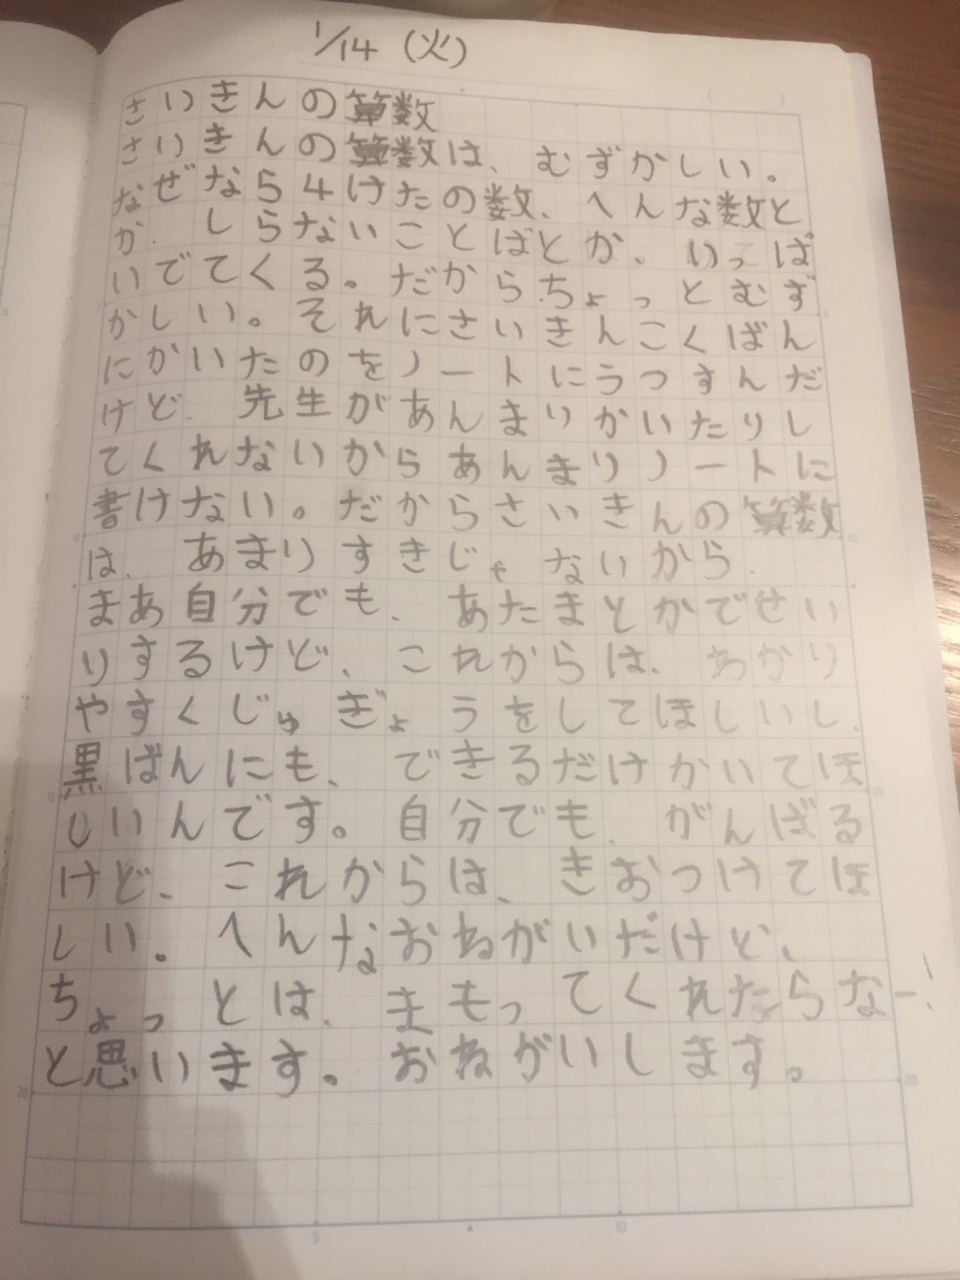 1/14(火)
さいきんの算数
さいきんの算数は、むずかしい。
なぜなら4けたの数、へんな数と
か、しらないことばとか、いっぱ
いでてくる。だからちょっとむず
かしい。それにさいきんこくばん
にかいたのをノートにうつすんだ
けど、先生があんまりかいたりし
てくれないからあんまりノートに
書けない。だからさいきんの算数
は、あまりすきじゃないから、
まあ自分でも、あたまとかでせい
りするけど、これからは、わかり
やすくじゅぎょうをしてほしいし、
黒ばんにも、できるだけかいてほ
しいんです。自分でも、がんばる
けど、これからは、きおつけてほ
しい。へんなおねがいだけど、
ちょっとは、まもってくれたらなー!
と思います。おねがいします。
5
10
15
20
10
20
5
10